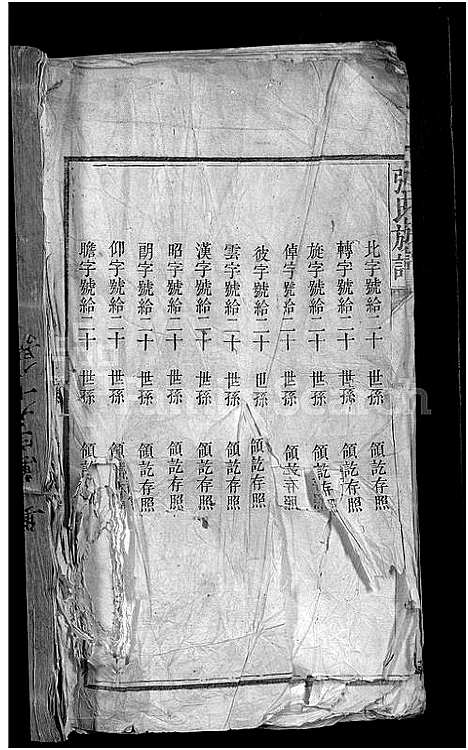 張氏族譜
北字號給二十 世孫 領訖存照
轉字號給二十 世孫 領訖存照
旋字號給二十 世孫 領訖存照
倬字號給二十 世孫 領訖存照
彼字號給二十 世孫 領訖存照
雲字號給二十 世孫 領訖存照
漢字號給二十 世孫 領訖存照
昭字號給二十 世孫 領訖存照
朗字號給二十 世孫 領訖存照
仰字號給二十 世孫 領
瞻字號給二十 世孫 領